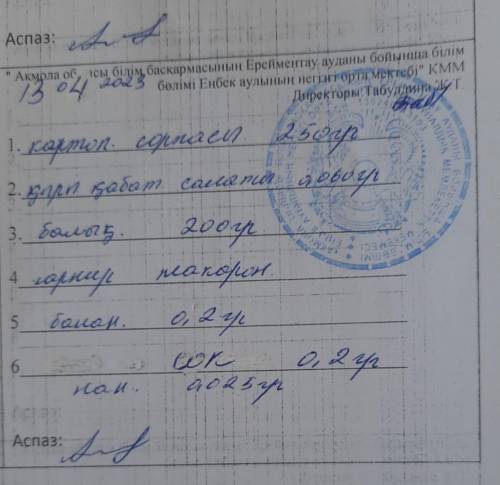 Аспаз:
" Ақмола об ысы білім басқармасының Ерейментау ауданы бойынша білім
13 04 2023 бөлімі Еңбек аулының негізгі орта мектебі" КММ
Директоры Табулдина Ж Г
1. картоп. сорпасы 250гр
2. қырп қабат. салаты. 0,060гр
3. балық. 200гр
4 гарнир макарон.
5 банан. 0,2гр
6 сок 0,2гр
нан. 0,025гр
Аспаз: